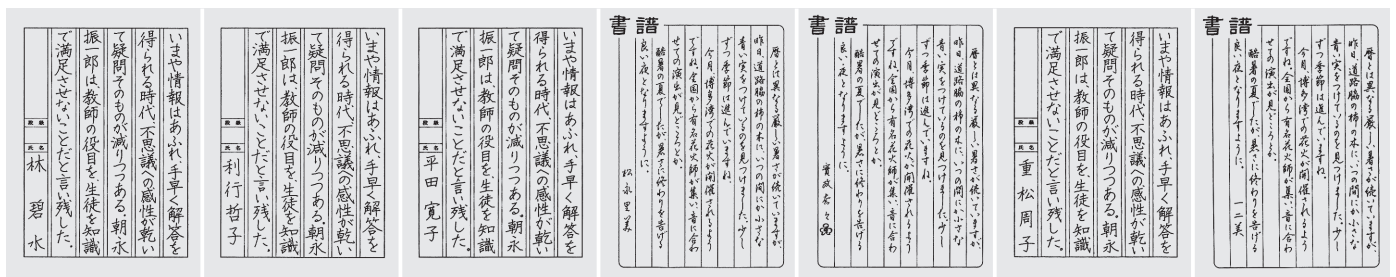 いまや情報はあふれ、手早く解答を
得られる時代、不思議への感性が乾い
て疑問そのものが減りつつある。朝永
振一郎は、教師の役目を、生徒を知識
で満足させないことだと言い残した。
段級
氏名
林碧水
いまや情報はあふれ、手早く解答を
得られる時代、不思議への感性が乾い
て疑問そのものが減りつつある。朝永
振一郎は、教師の役目を、生徒を知識
で満足させない、ことだと言い残した。
段級
氏名
利行哲子
いまや情報はあふれ、手早く解答を
得られる時代、不思議への感性が乾い
て疑問そのものが減りつつある。朝永
振一郎は、教師の役目を、生徒を知識
で満足させない、ことだと言い残した。
段級
氏名
平田寛子
書譜
暦とは異なる厳しい暑さが続いていますが、
昨日、道路脇の柿の木に、いつの間にか小さな
青い実をつけているのを見つけました。少し
ずつ季節は進んでいますね。
今月、博多湾での花火が開催されるよう
ですね。全国から有名花火師が集い、音に合わ
せての演出が見どころとか。
酷暑の夏でしたが、暑さに終わりを告げる
良い夜となりますように。
松永里美
書譜
暦とは異なる厳しい暑さが続いていますが、
昨日、道路脇の柿の木に、いつの間にか小さな
青い実をつけているのを見つけました。少し
ずつ季節は進んでいます。
今月、博多湾での花火が開催されるよう
ですね。全国から有名花火師が集い、音に合わ
せての演出が見どころとか。
酷暑の夏でしたが、暑さに終わりを告げる
良い夜となりますように。
いまや情報はあふれ、手早く解答を
得られる時代、不思議への感性が乾い
て疑問そのものが減りつつある。朝永
振一郎は、教師の役目を、生徒を知識
で満足させない、ことだと言い残した。
段級
氏名
重松周子
書譜
暦とは異なる厳しい暑さが続いていますが、
昨日、道路脇の柿の木に、いつの間にか小さな
青い実をつけているのを見つけました。少し
ずつ季節は進んでいますね。
今月、博多湾での花火が開催されるよう
ですね。全国から有名花火師が集い、音に合わ
せての演出が見どころとか。
酷暑の夏でしたが、暑さに終わりを告げる
良い夜となりますように。
一二美